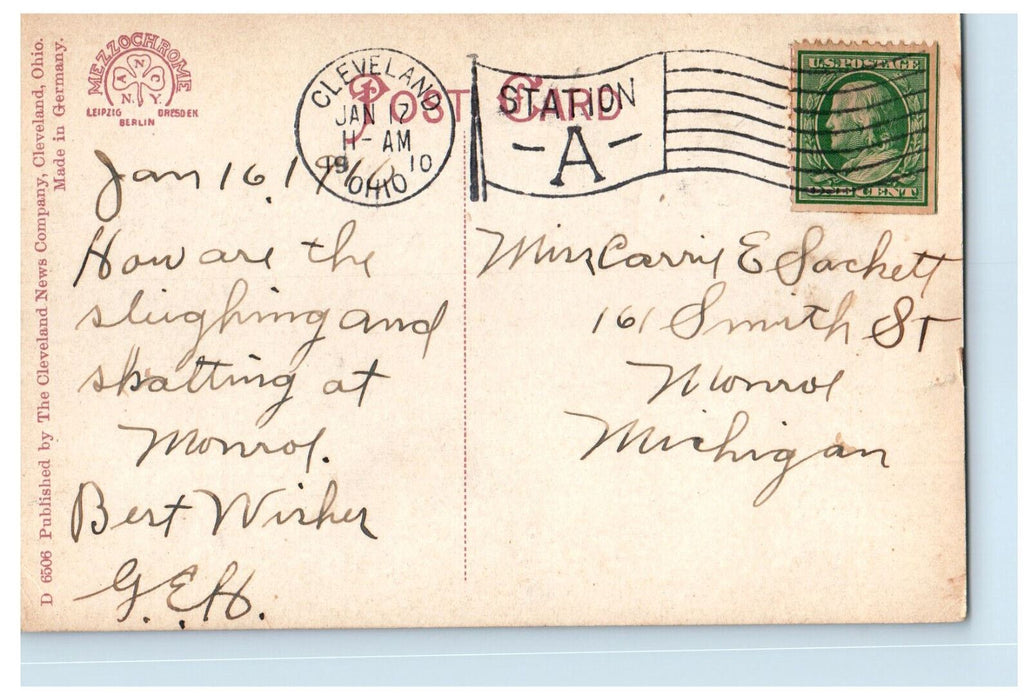 D 6506 Published by The Cleveland News Company, Cleveland, Ohio.
Made in Germany.
MEZZOCHROME
A N C
N.Y.
LEIPZIG DRESDEN
BERLIN
POST CARD
CLEVELAND
JAN 17
11-AM
1910
OHIO
STATION
-A-
U.S. POSTAGE
ONE CENT
Jan 16. 1910
How are the
sleighing and
skatting at
Monroe.
Best Wishes
G.E.H.
Miss Carrie E Sackett
161 Smith St
Monroe
Michigan